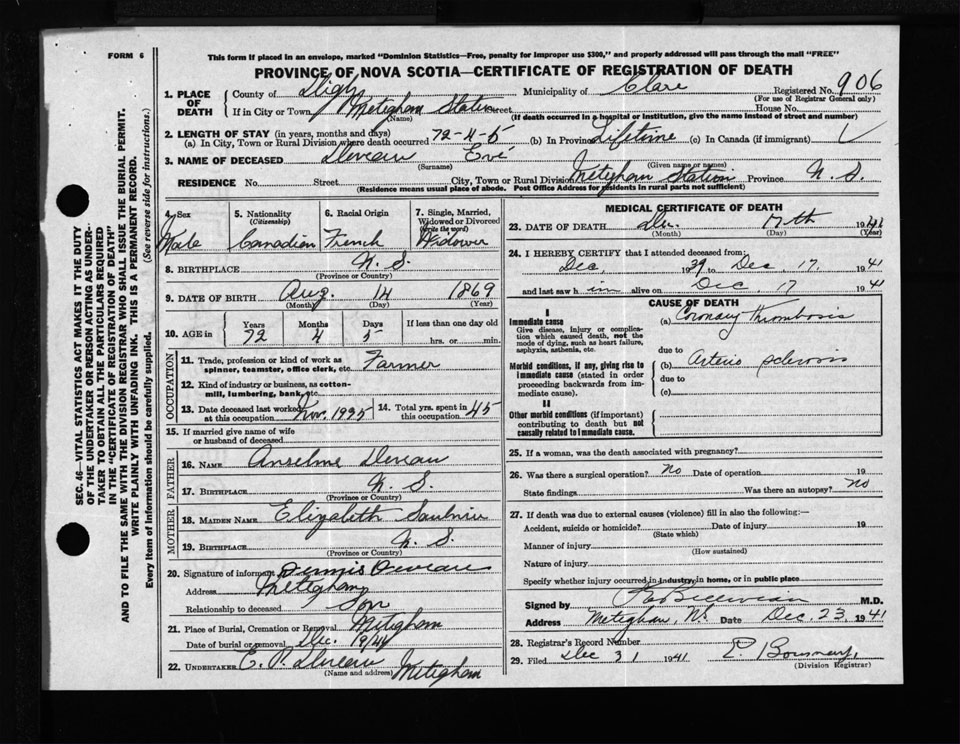 FORM 6
This form if placed in an envelope, marked "Dominion Statistics—Free, penalty for improper use $300," and properly addressed will pass through the mail "FREE"
PROVINCE OF NOVA SCOTIA—CERTIFICATE OF REGISTRATION OF DEATH
1. PLACE OF DEATH County of Digby Municipality of Clare Registered No. 906
(For use of Registrar General only)
If in City or Town Meteghan Station Street House No.
(Name) (If death occurred in a hospital or institution, give the name instead of street and number)
2. LENGTH OF STAY (in years, months and days)
(a) In City, Town or Rural Division where death occurred 72-4-5 (b) In Province Lifetime (c) In Canada (if immigrant)
3. NAME OF DECEASED Deveau
(Surname) (Given name or names)
RESIDENCE No. Street City, Town or Rural Division Meteghan Station Province N. S.
(Residence means usual place of abode. Post Office Address for residents in rural parts not sufficient)
4. Sex Male
5. Nationality (Citizenship) Canadian
6. Racial Origin French
7. Single, Married, Widowed or Divorced (Write the word) Widower
8. BIRTHPLACE N. S.
(Province or Country)
9. DATE OF BIRTH Aug 14 1869
(Month) (Day) (Year)
10. AGE in Years 72 Months 4 Days 5 If less than one day old hrs. or min.
OCCUPATION
11. Trade, profession or kind of work as spinner, teamster, office clerk, etc. Farmer
12. Kind of industry or business, as cotton-mill, lumbering, bank, etc.
13. Date deceased last worked at this occupation Nov. 14. Total yrs. spent in this occupation 45
15. If married give name of wife or husband of deceased
FATHER
16. NAME Anselme Deveau
17. BIRTHPLACE N. S.
(Province or Country)
MOTHER
18. MAIDEN NAME Elizabeth Saulnier
19. BIRTHPLACE N. S.
(Province or Country)
20. Signature of informant Dennis Deveau
Address Meteghan
Relationship to deceased Son
21. Place of Burial, Cremation or Removal Meteghan
Date of burial or removal Dec.
22. UNDERTAKER E. P. Deveau Meteghan
(Name and address)
MEDICAL CERTIFICATE OF DEATH
23. DATE OF DEATH Dec. 17th 1941
(Month) (Day) (Year)
24. I HEREBY CERTIFY that I attended deceased from
Dec. 1939 to Dec. 17. 1941
and last saw him alive on Dec. 17 1941
CAUSE OF DEATH
I
Immediate cause (a) Coronary Thrombosis
Give disease, injury or complication which caused death, not the mode of dying, such as heart failure, asphyxia, asthenia, etc.
due to
Morbid conditions, if any, giving rise to immediate cause (stated in order proceeding backwards from immediate cause). (b) Arterio sclerosis
due to
(c)
II
Other morbid conditions (if important) contributing to death but not causally related to immediate cause.
25. If a woman, was the death associated with pregnancy?
26. Was there a surgical operation? No Date of operation 19
State findings Was there an autopsy? No
27. If death was due to external causes (violence) fill in also the following:—
Accident, suicide or homicide? Date of injury 19
(State which)
Manner of injury
(How sustained)
Nature of injury
Specify whether injury occurred in industry, in home, or in public place
Signed by M.D.
Address Meteghan, N.S. Date Dec. 23. 1941
28. Registrar's Record Number
29. Filed Dec 31 1941
(Division Registrar)
SEC. 46—VITAL STATISTICS ACT MAKES IT THE DUTY
OF THE UNDERTAKER OR PERSON ACTING AS UNDER-
TAKER TO OBTAIN ALL THE PARTICULARS REQUIRED
IN THE "CERTIFICATE OF REGISTRATION OF DEATH"
AND TO FILE THE SAME WITH THE DIVISION REGISTRAR WHO SHALL ISSUE THE BURIAL PERMIT.
WRITE PLAINLY WITH UNFADING INK. THIS IS A PERMANENT RECORD.
Every item of information should be carefully supplied. (See reverse side for instructions.)